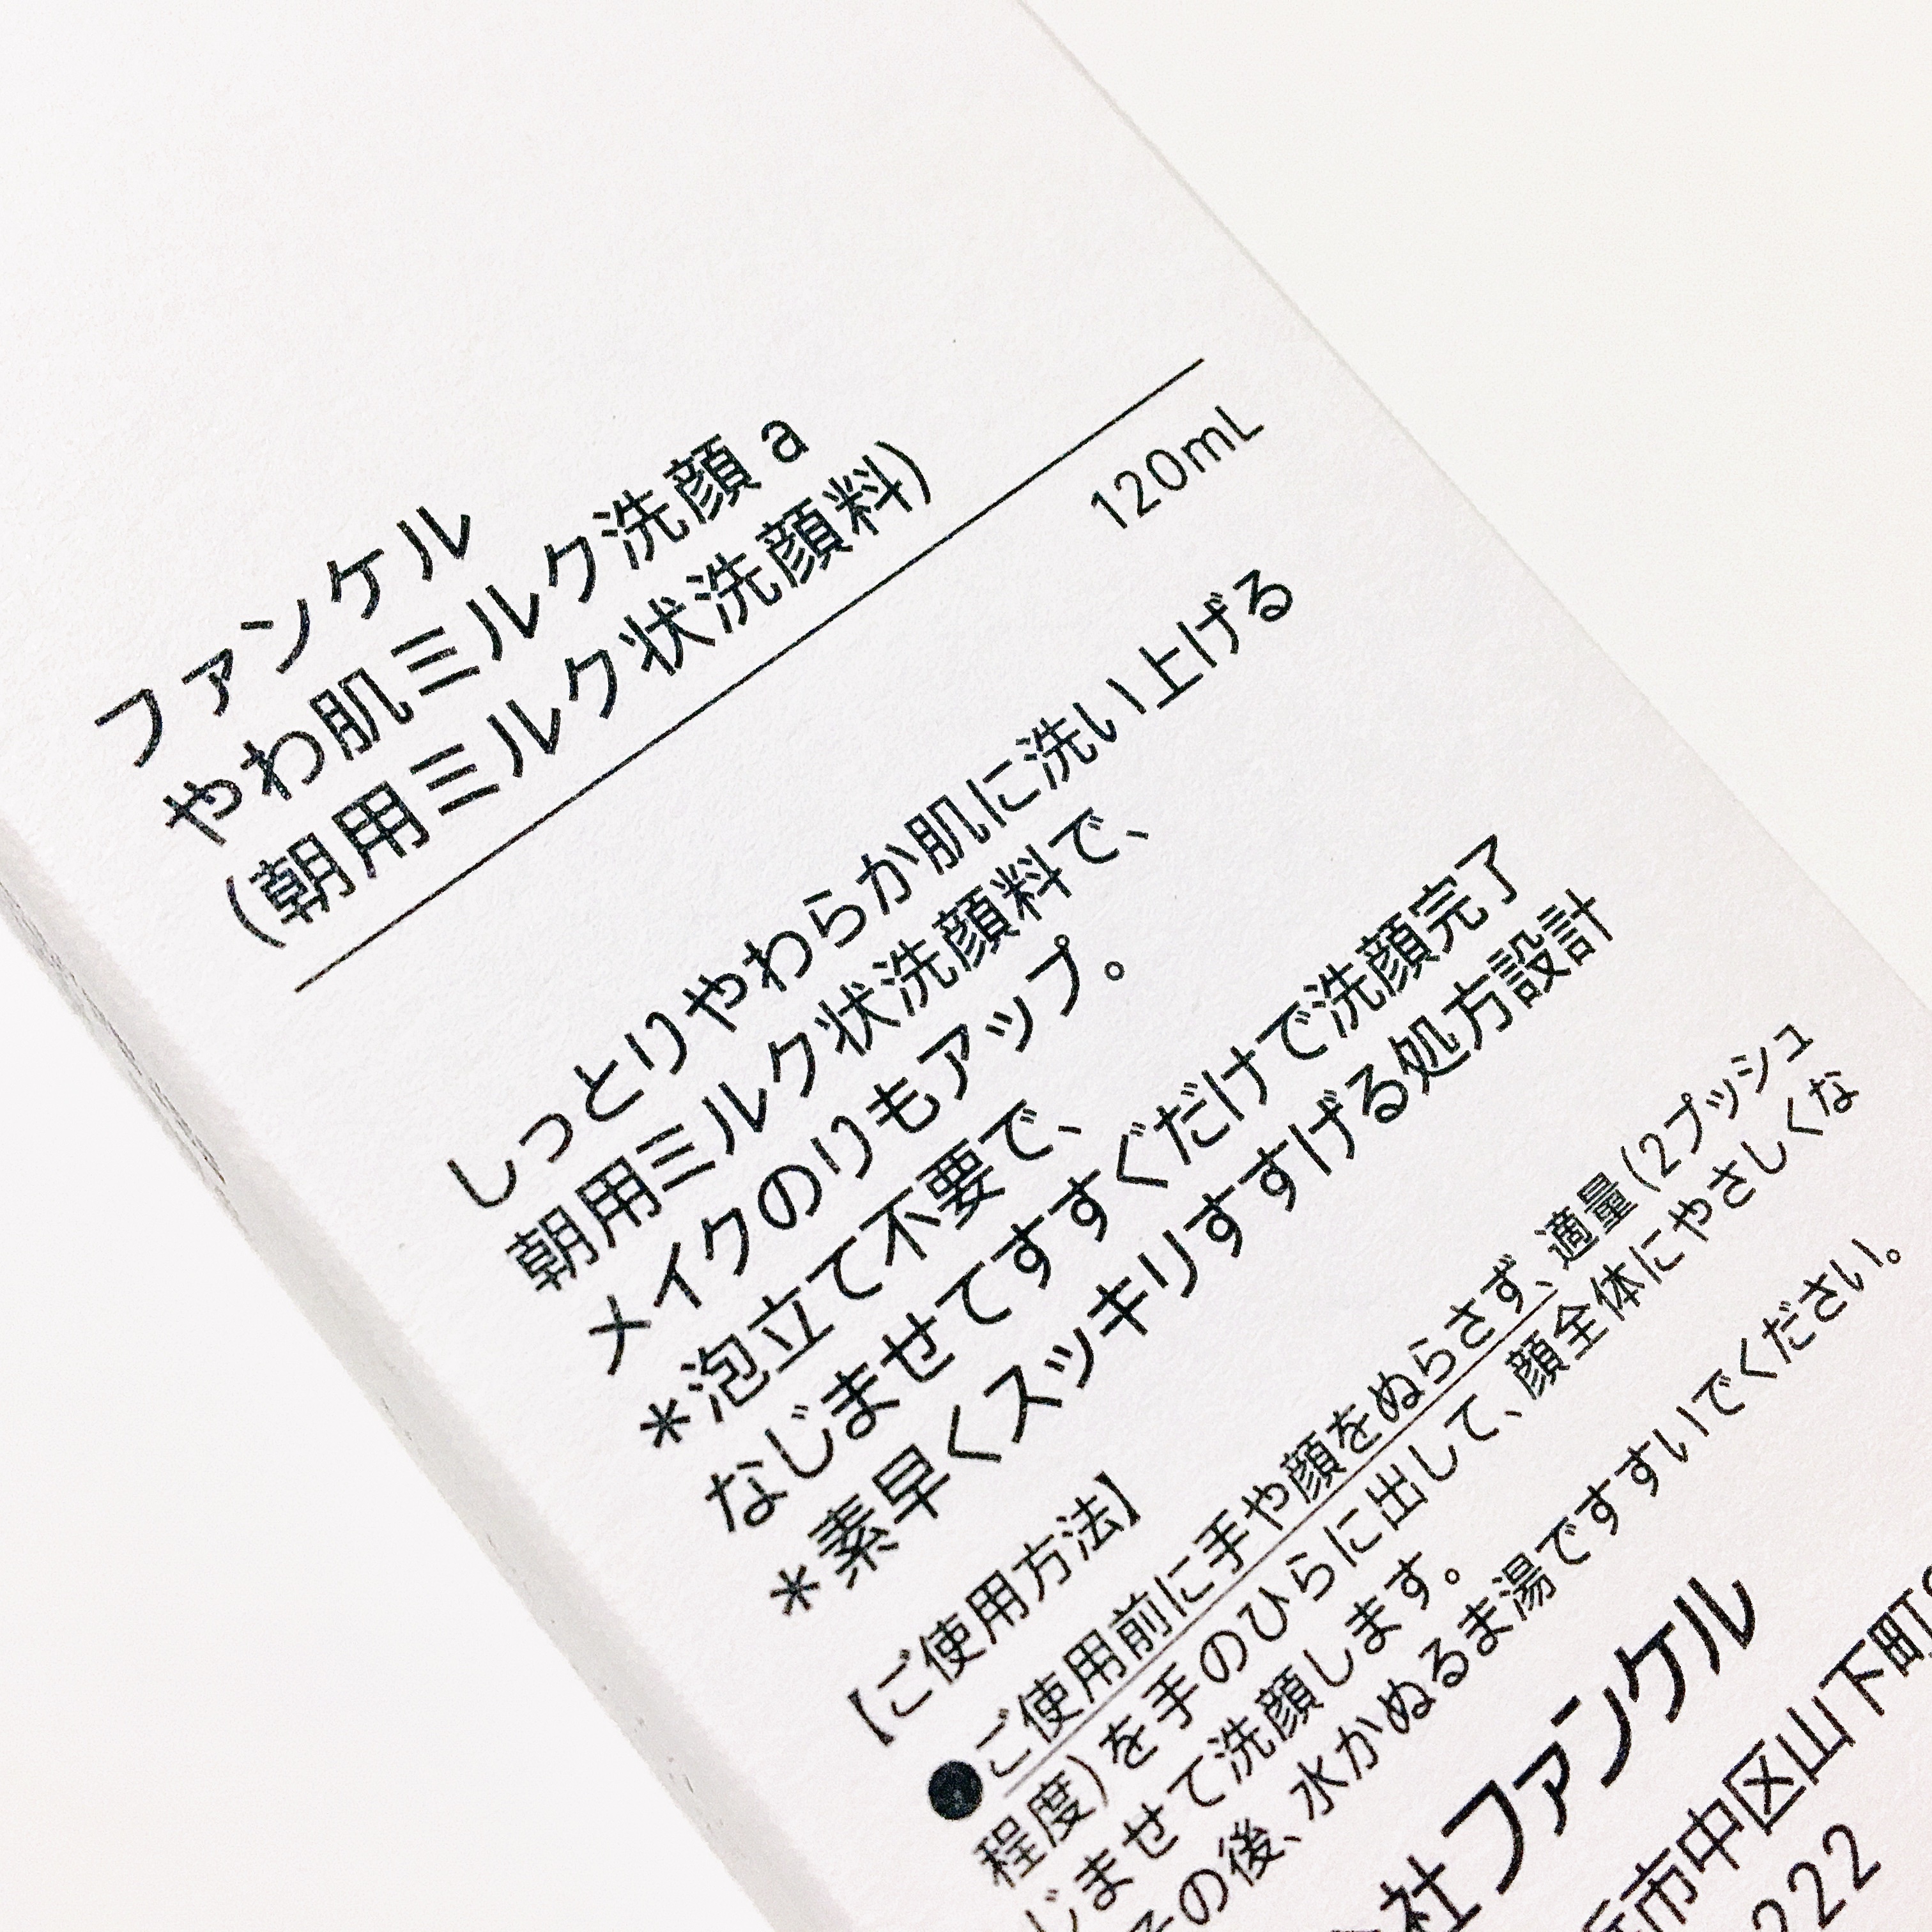 ファンケル
やわ肌ミルク洗顔 a
(朝用ミルク状洗顔料)
120mL
しっとりやわらか肌に洗い上げる
朝用ミルク状洗顔料で、
メイクのりもアップ。
*泡立て不要で、
なじませてすすぐだけで洗顔完了
*素早くスッキリすすげる処方設計
【ご使用方法】
●ご使用前に手や顔をぬらさず、適量(2プッシュ
程度)を手のひらに出して、顔全体にやさしくな
じませて洗顔します。
その後、水かぬるま湯ですすいでください。
社 ファンケル
市中区山下町
222